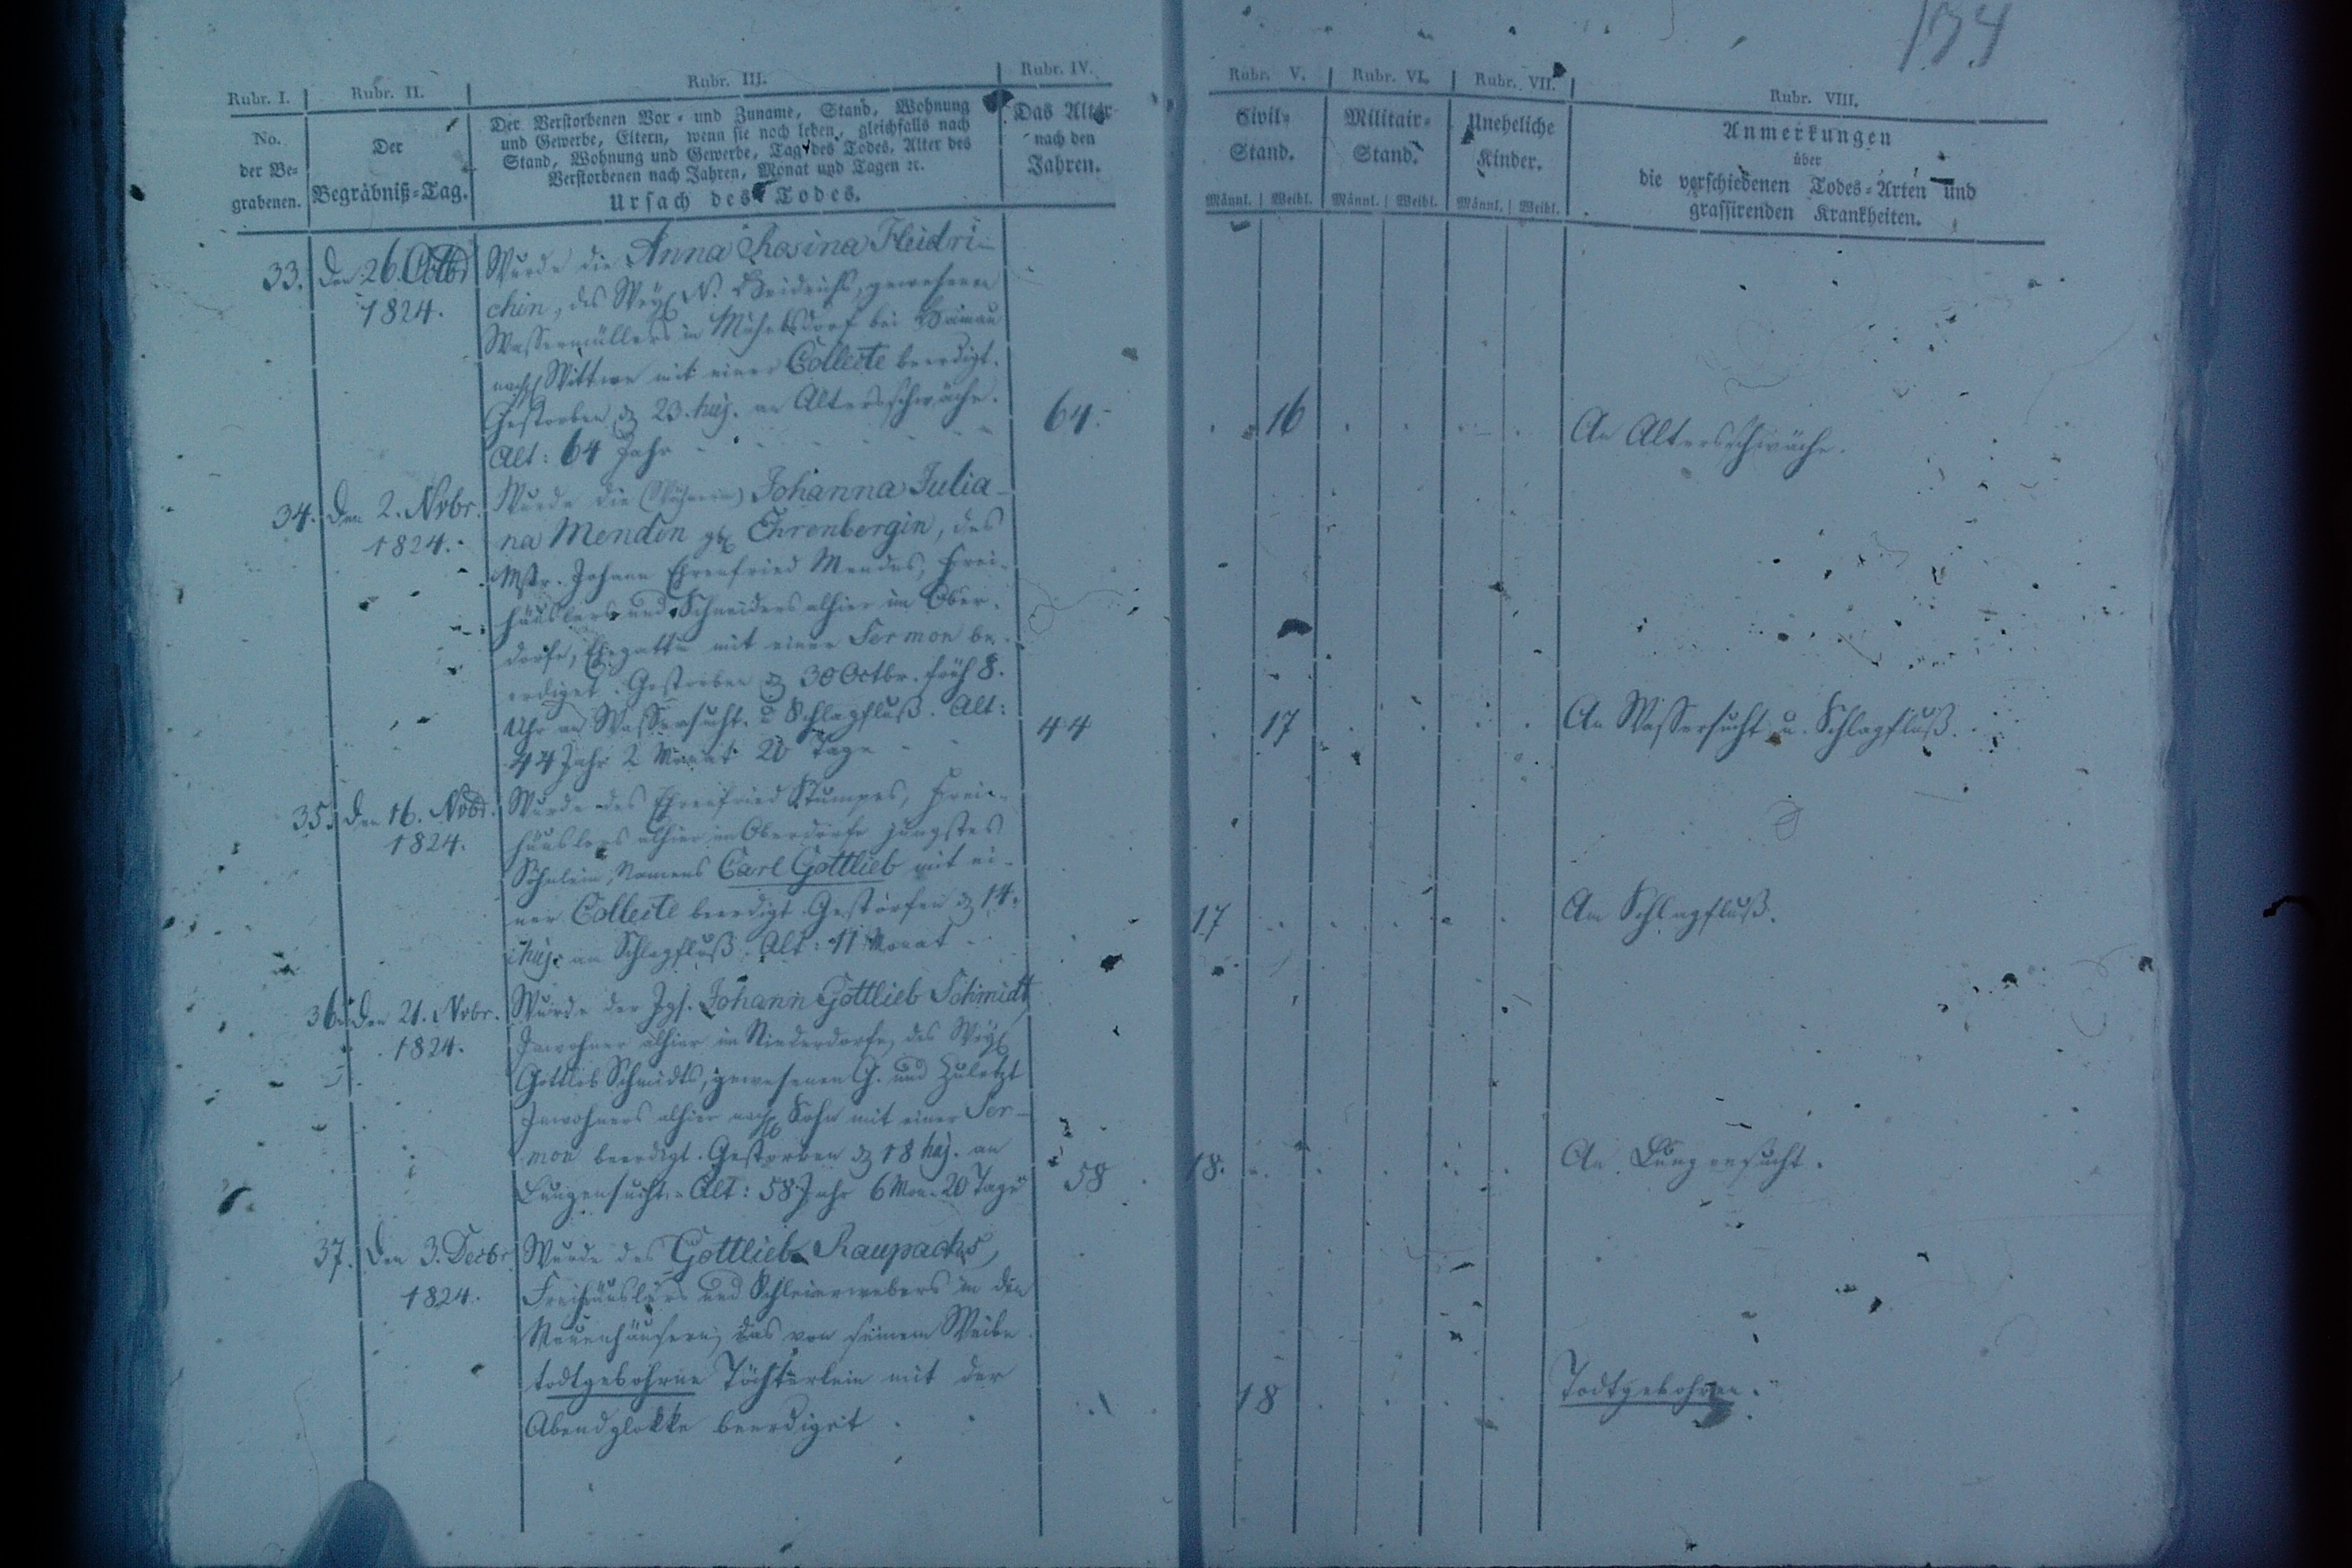 134
Rubr. I. Rubr. II. Rubr. III. Rubr. IV. Rubr. V. Rubr. VI. Rubr. VII. Rubr. VIII.
No.
der Be-
grabenen.
Der
Begräbniß-Tag.
Der Verstorbenen Vor- und Zuname, Stand, Wohnung
und Gewerbe, Eltern, wenn sie noch leben, gleichfalls nach
Stand, Wohnung und Gewerbe, Tag des Todes, Alter des
Verstorbenen nach Jahren, Monat und Tagen ꝛc.
Ursach des Todes.
Das Alter
nach den
Jahren.
Civil-
Stand.
Männl. Weibl.
Militair-
Stand.
Männl. Weibl.
Uneheliche
Kinder.
Männl. Weibl.
Anmerkungen
über
die verschiedenen Todes-Arten und
grassirenden Krankheiten.
33. Den 26. Octbr
1824.
Wurde die Anna Rosina Heidri-
chin, des Weyl N. Heidrichs, gewesenen
Wassermüllers in bei Hainau
nachl Wittwe mit einer Collecte beerdigt.
Gestorben d 23. huj. an Altersschwäche.
Alt: 64 Jahr
64.
16
An Altersschwäche.
34. Den 2. Novbr.
1824.
Wurde die Johanna Julia-
na Mendin geb Ehrenbergin, des
Mstr. Johann Ehrenfried Mendes, Frei-
häuslers und Schneiders alhier im Ober-
dorfe, Ehegattin mit einer Sermon be-
erdiget. Gestorben d 30 Octbr. früh 8.
Uhr an Wassersucht u Schlagfluß. Alt:
44 Jahr 2 Monat 20 Tage
44
17
An Wassersucht u. Schlagfluß.
35. Den 16. Novbr.
1824.
Wurde des Ehrenfried Stumpes, Frei-
häuslers alhier im Oberdorfe jüngstes
Söhnlein, Namens Carl Gottlieb mit ei-
ner Collecte beerdigt. Gestorben d 14.
huj. am Schlagfluß. Alt: 11 Monat
17
Am Schlagfluß.
36. Den 21. Novbr.
1824.
Wurde der Jgs. Johann Gottlieb Schmidt
Inwohner alhier im Niederdorfe, des Weyl
Gottlob Schmidts, gewesenen G. und zuletzt
Inwohners alhier nachl Sohn mit einer Ser-
mon beerdigt. Gestorben d 18 huj. an
Lungensucht. Alt: 58 Jahr 6 Mon. 20 Tage
58
18.
An Lungensucht.
37. Den 3. Decbr
1824.
Wurde des Gottlieb Raupachs,
Freihäuslers und Schleierwebers in den
Neuenhäusern, das von seinem Weibe
todtgebohrne Töchterlein mit der
Abendglokke beerdiget
18
Todtgebohren.